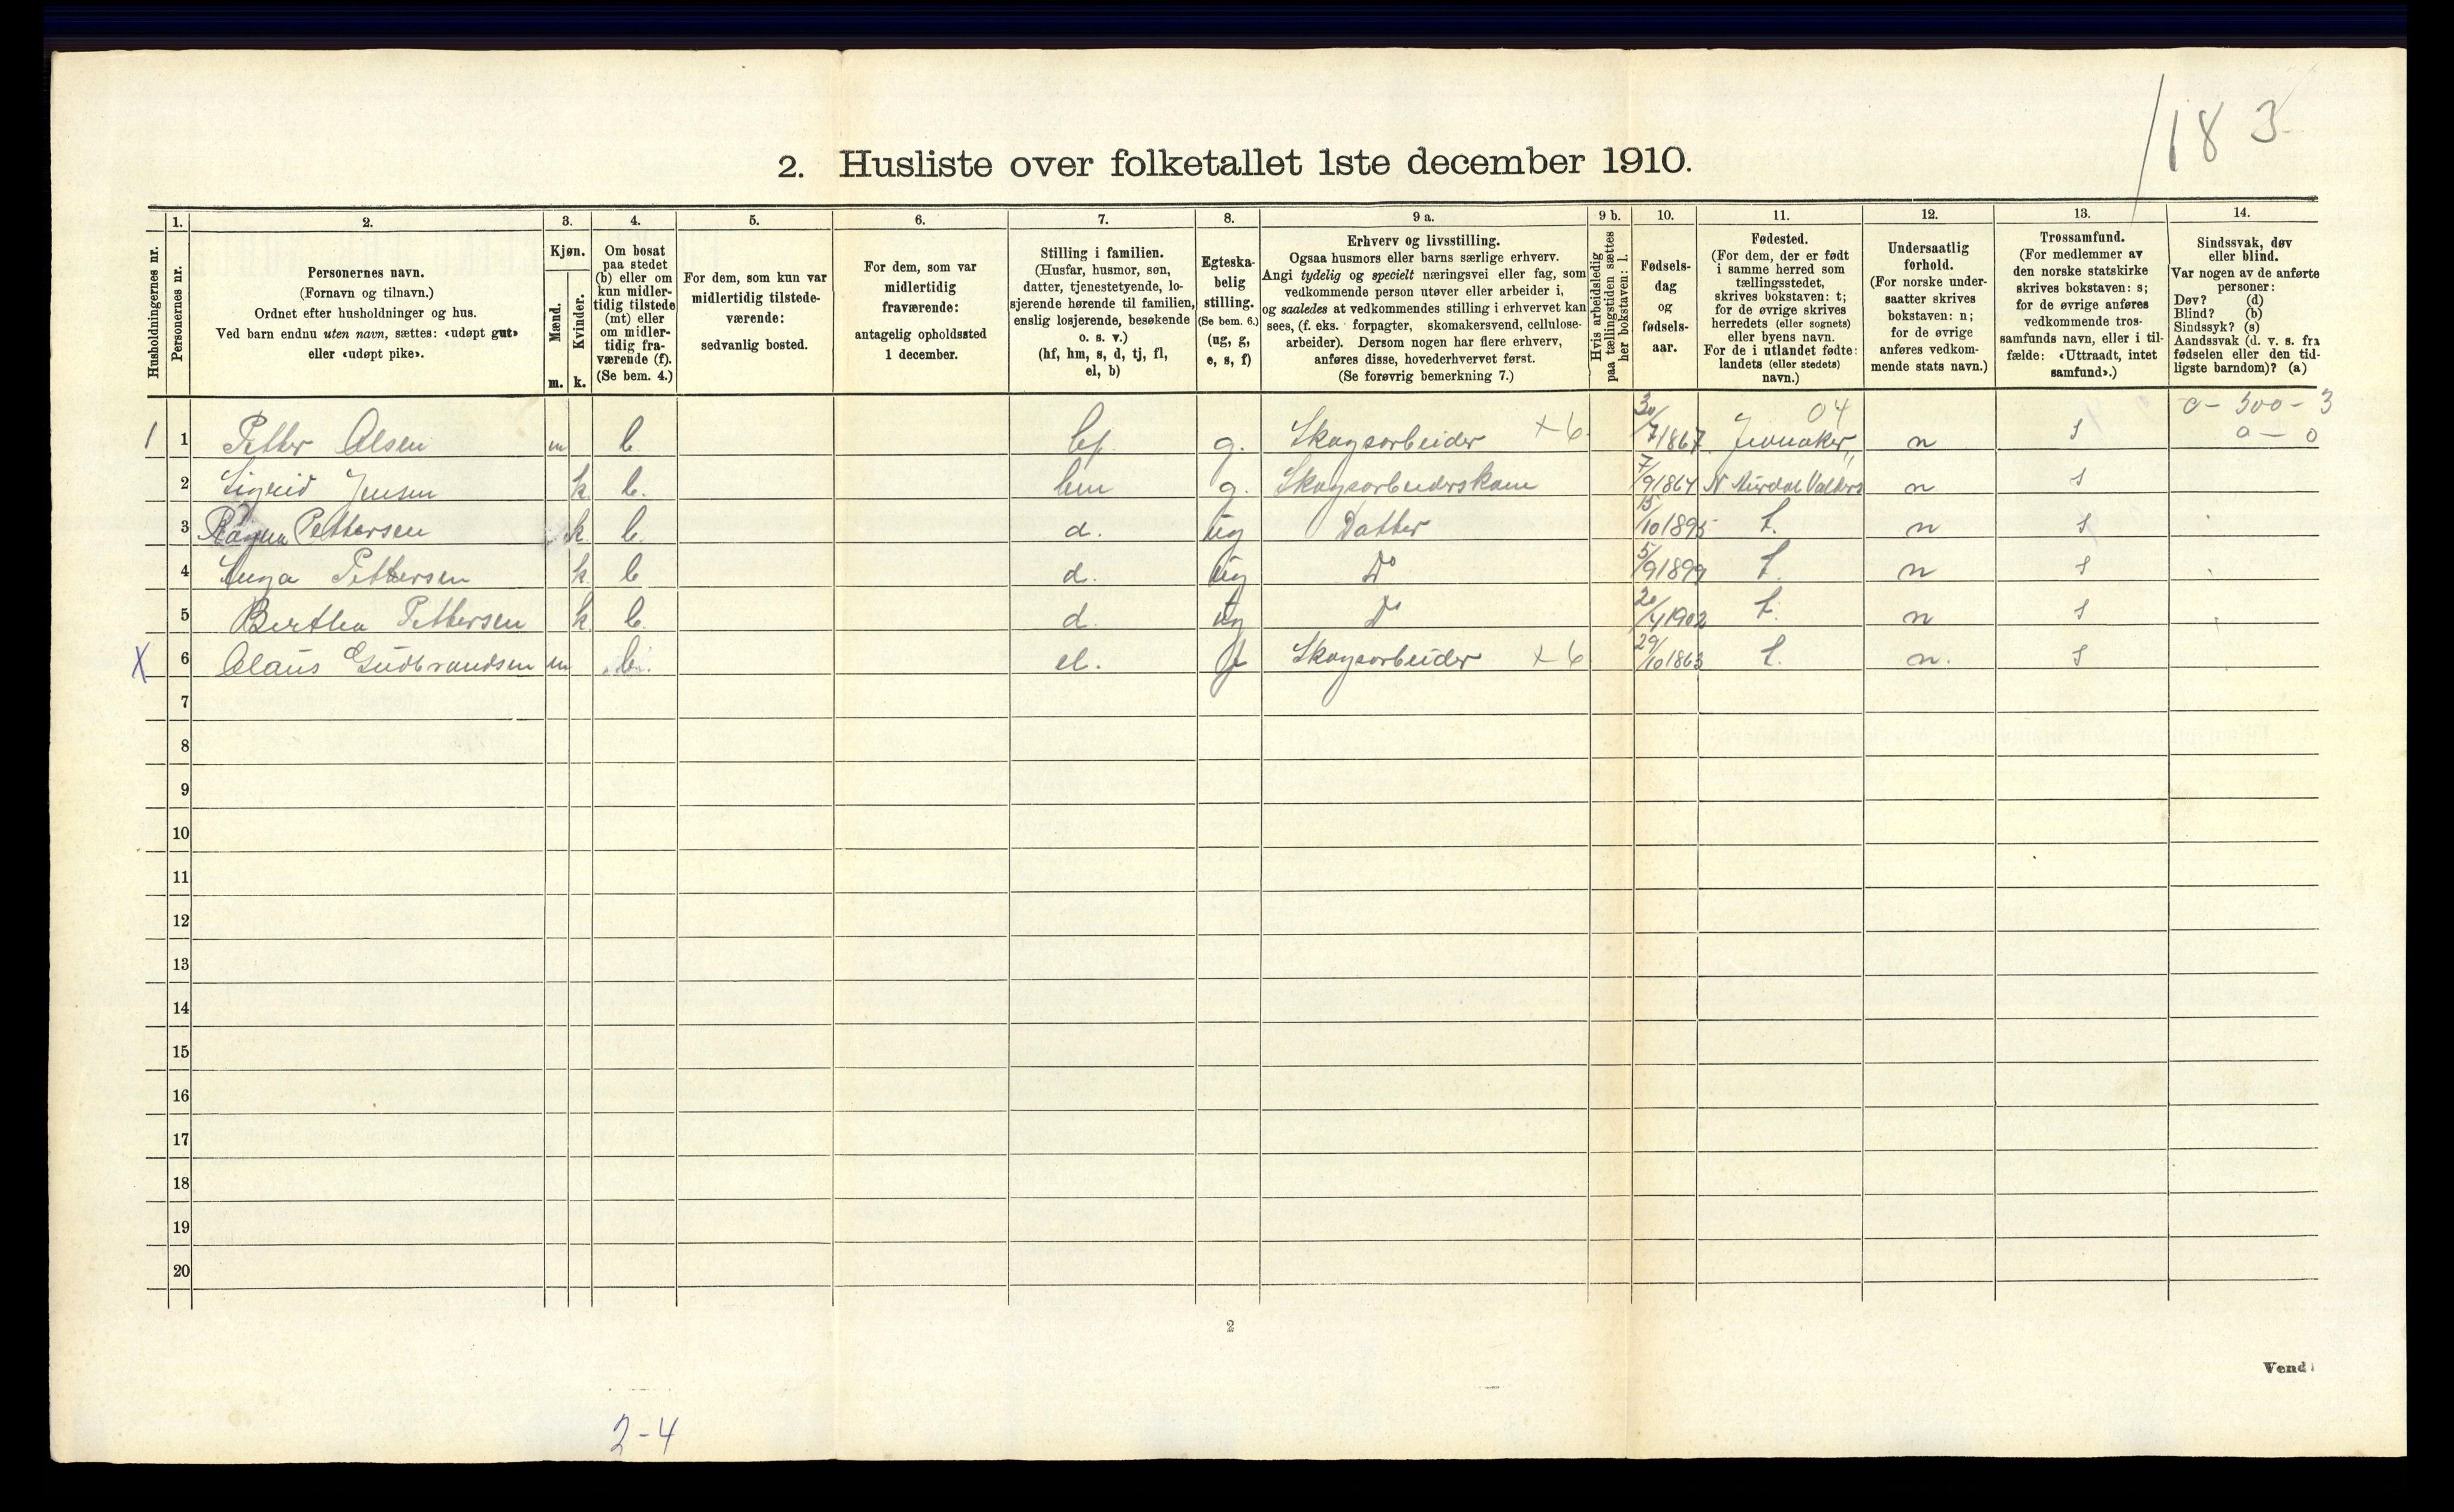 183
2. Husliste over folketallet 1ste december 1910.
Husholdningernes nr.
1.
Personernes nr.
2.
Personernes navn.
(Fornavn og tilnavn.)
Ordnet efter husholdninger og hus.
Ved barn endnu uten navn, sættes: «udøpt gut»
eller «udøpt pike».
3.
Kjøn.
Mænd.
m.
Kvinder.
k.
4.
Om bosat
paa stedet
(b) eller om
kun midler-
tidig tilstede
(mt) eller
om midler-
tidig fra-
værende (f).
(Se bem. 4.)
5.
For dem, som kun var
midlertidig tilstede-
værende:
sedvanlig bosted.
6.
For dem, som var
midlertidig
fraværende:
antagelig opholdssted
1 december.
7.
Stilling i familien.
(Husfar, husmor, søn,
datter, tjenestetyende, lo-
sjerende hørende til familien,
enslig losjerende, besøkende
o. s. v.)
(hf, hm, s, d, tj, fl,
el, b)
8.
Egteska-
belig
stilling.
(Se bem. 6.)
(ug, g,
e, s, f)
9 a.
Erhverv og livsstilling.
Ogsaa husmors eller barns særlige erhverv.
Angi tydelig og specielt næringsvei eller fag, som
vedkommende person utøver eller arbeider i,
og saaledes at vedkommendes stilling i erhvervet kan
sees, (f. eks. forpagter, skomakersvend, cellulose-
arbeider). Dersom nogen har flere erhverv,
anføres disse, hovederhvervet først.
(Se forøvrig bemerkning 7.)
9 b.
Hvis arbeidsledig
paa tællingstiden sættes
her bokstaven: l.
10.
Fødsels-
dag
og
fødsels-
aar.
11.
Fødested.
(For dem, der er født
i samme herred som
tællingsstedet,
skrives bokstaven: t;
for de øvrige skrives
herredets (eller sognets)
eller byens navn.
For de i utlandet fødte:
landets (eller stedets)
navn.)
12.
Undersaatlig
forhold.
(For norske under-
saatter skrives
bokstaven: n;
for de øvrige
anføres vedkom-
mende stats navn.)
13.
Trossamfund.
(For medlemmer av
den norske statskirke
skrives bokstaven: s;
for de øvrige anføres
vedkommende tros-
samfunds navn, eller i til-
fælde: «Uttraadt, intet
samfund».)
14.
Sindssvak, døv
eller blind.
Var nogen av de anførte
personer:
Døv? (d)
Blind? (b)
Sindssyk? (s)
Aandssvak (d. v. s. fra
fødselen eller den tid-
ligste barndom)? (a)
04 0-500-3
1 1 Petter Olsen m b hf g. Skogsarbeider +6 30/7 1867 Jevnaker n s 0-0
2 Sigrid Jensen k b. hm g. Skogsarbeiderskone 7/9 1864 N Aurdal Valders n s
3 Ragna Pettersen k b. d. ug Datter 15/10 1895 t. n s
4 Inga Pettersen k b d. ug Do 5/9 1899 t. n s
5 Bertha Pettersen k b. d. ug Do 20/4 1902 t. n s
X 6 Olaus Gudbrandsen m b. el. f Skogsarbeider +6 29/10 1863 t. n. s
7
8
9
10
11
12
13
14
15
16
17
18
19
20
2
Vend
2-4